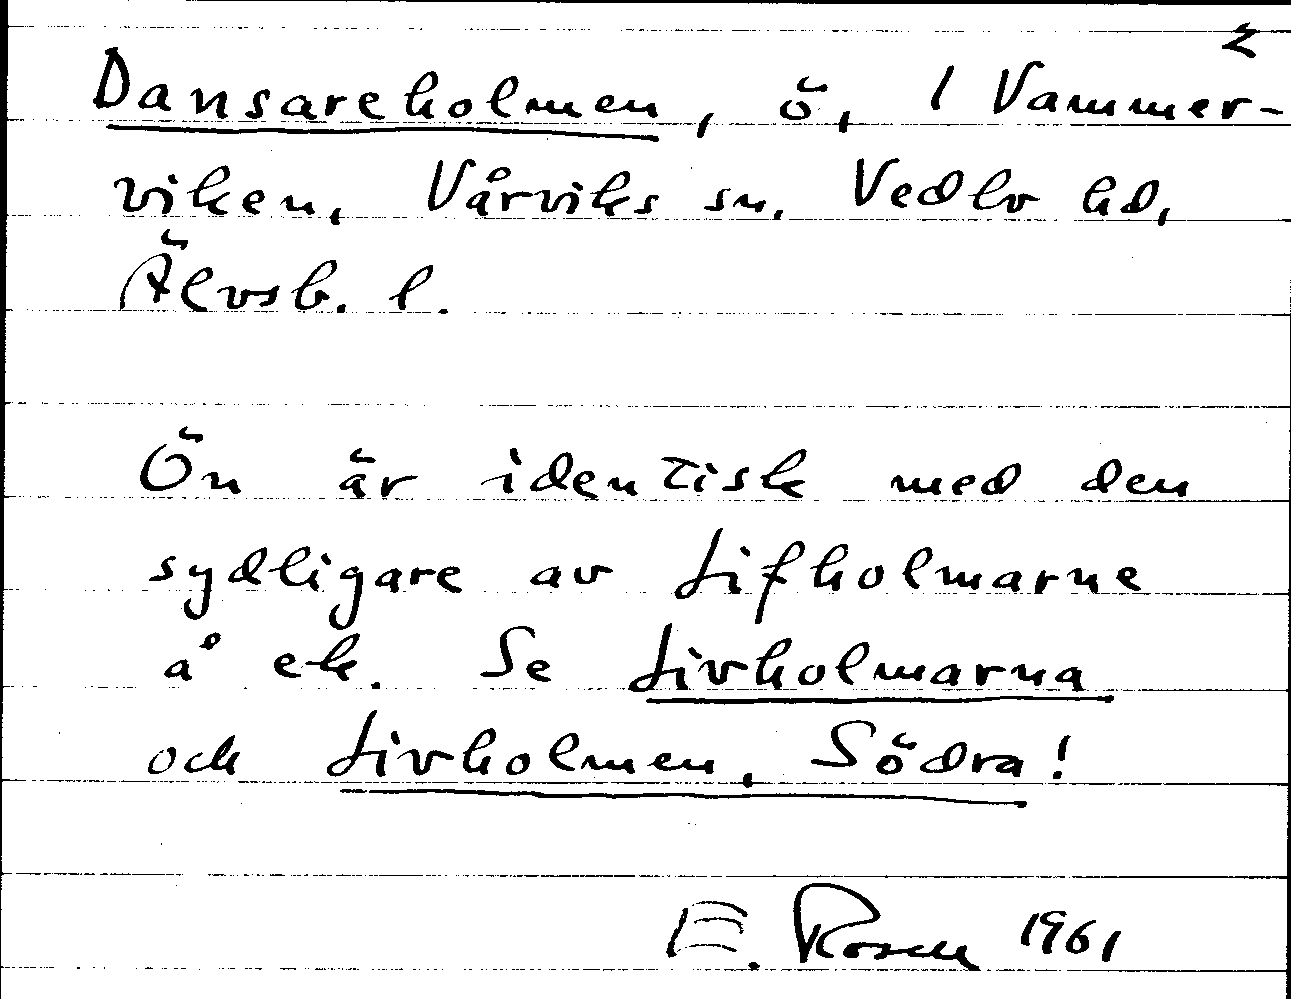 2
Dansareholmen, ö, i Vammer-
viken, Vårviks sn, Vedbo hd,
Älvsb. l.
Ön är identisk med den
sydligare av Lifholmarne
å ek. Se Livholmarna
och Livholmen, Södra!
E. Rosell 1961